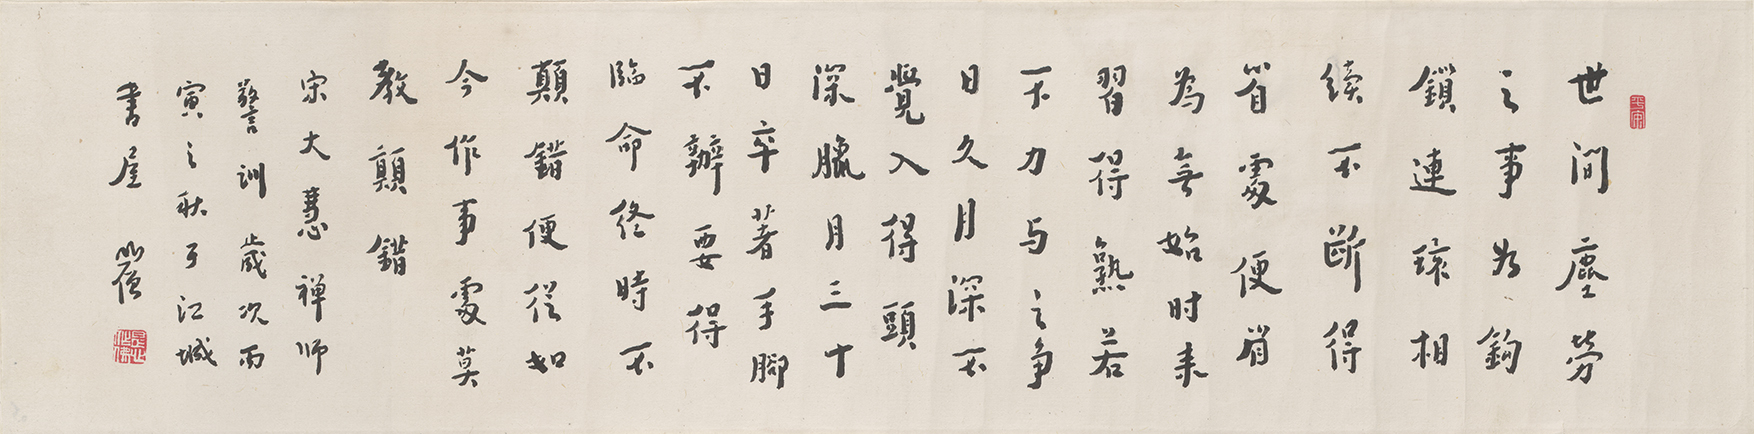 世間塵勞
之事如鉤
鎖連環相
續不斷得
省處便省
為無始时来
習得熟若
不力与之争
日久月深不
覺入得頭
深臘月三十
日卒著手腳
不辦要得
臨命終時不
顛錯便從如
今作事處莫
教顛錯
宋大慧禅师
警訓歲次丙
寅之秋于江城
書屋